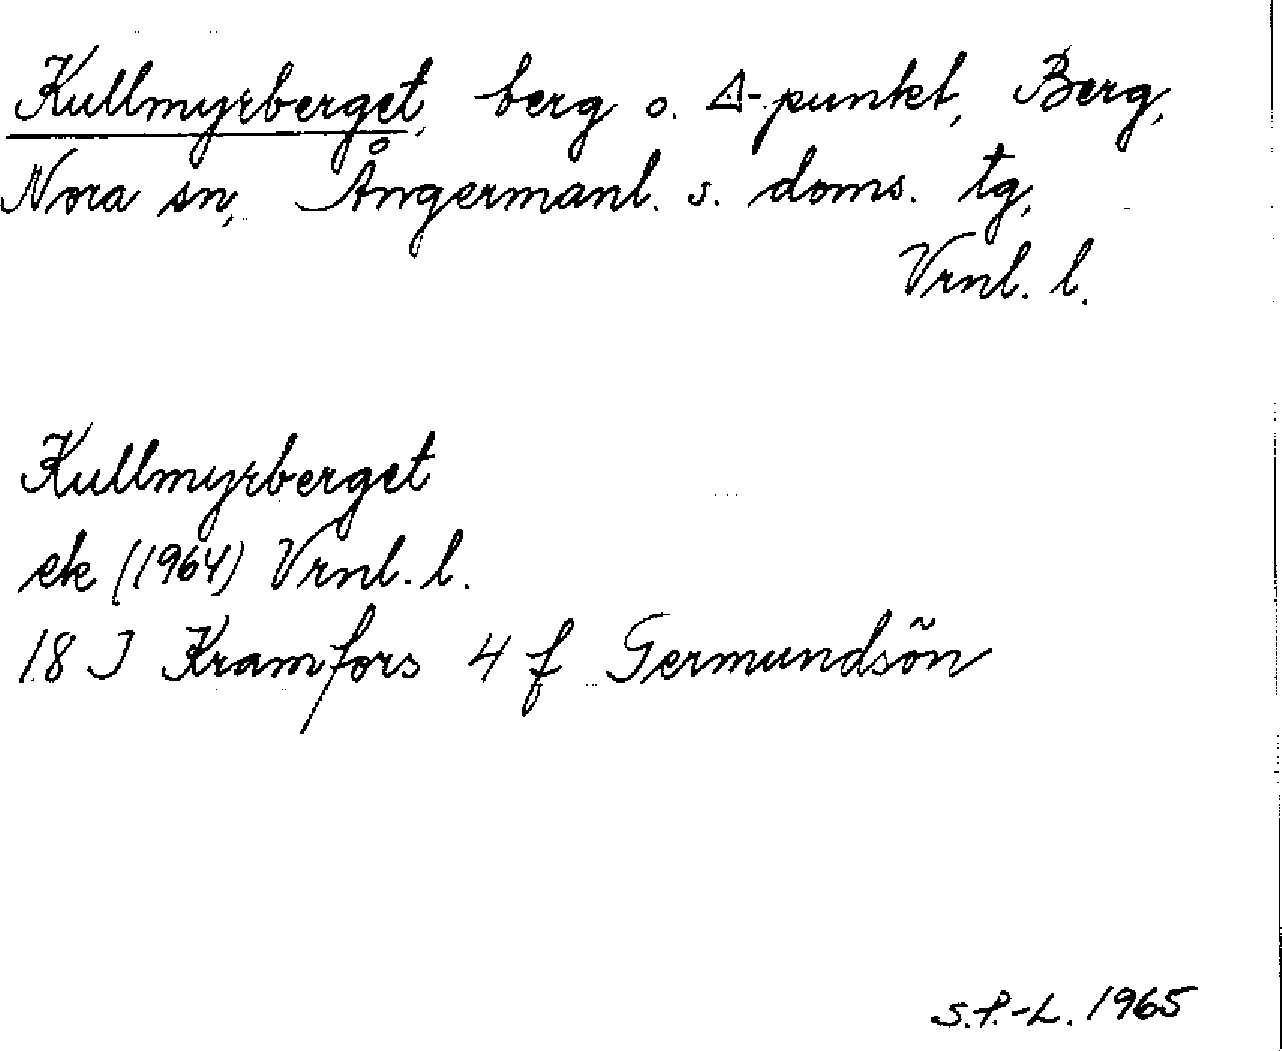 Kullmyrberget, berg o. △-punkt, Berg,
Nora sn, Ångermanl. s. doms. tg,
Vrnl. l.
Kullmyrberget
ek (1964) Vrnl. l.
18 I Kramfors 4 f Germundsön
S.P.-L. 1965